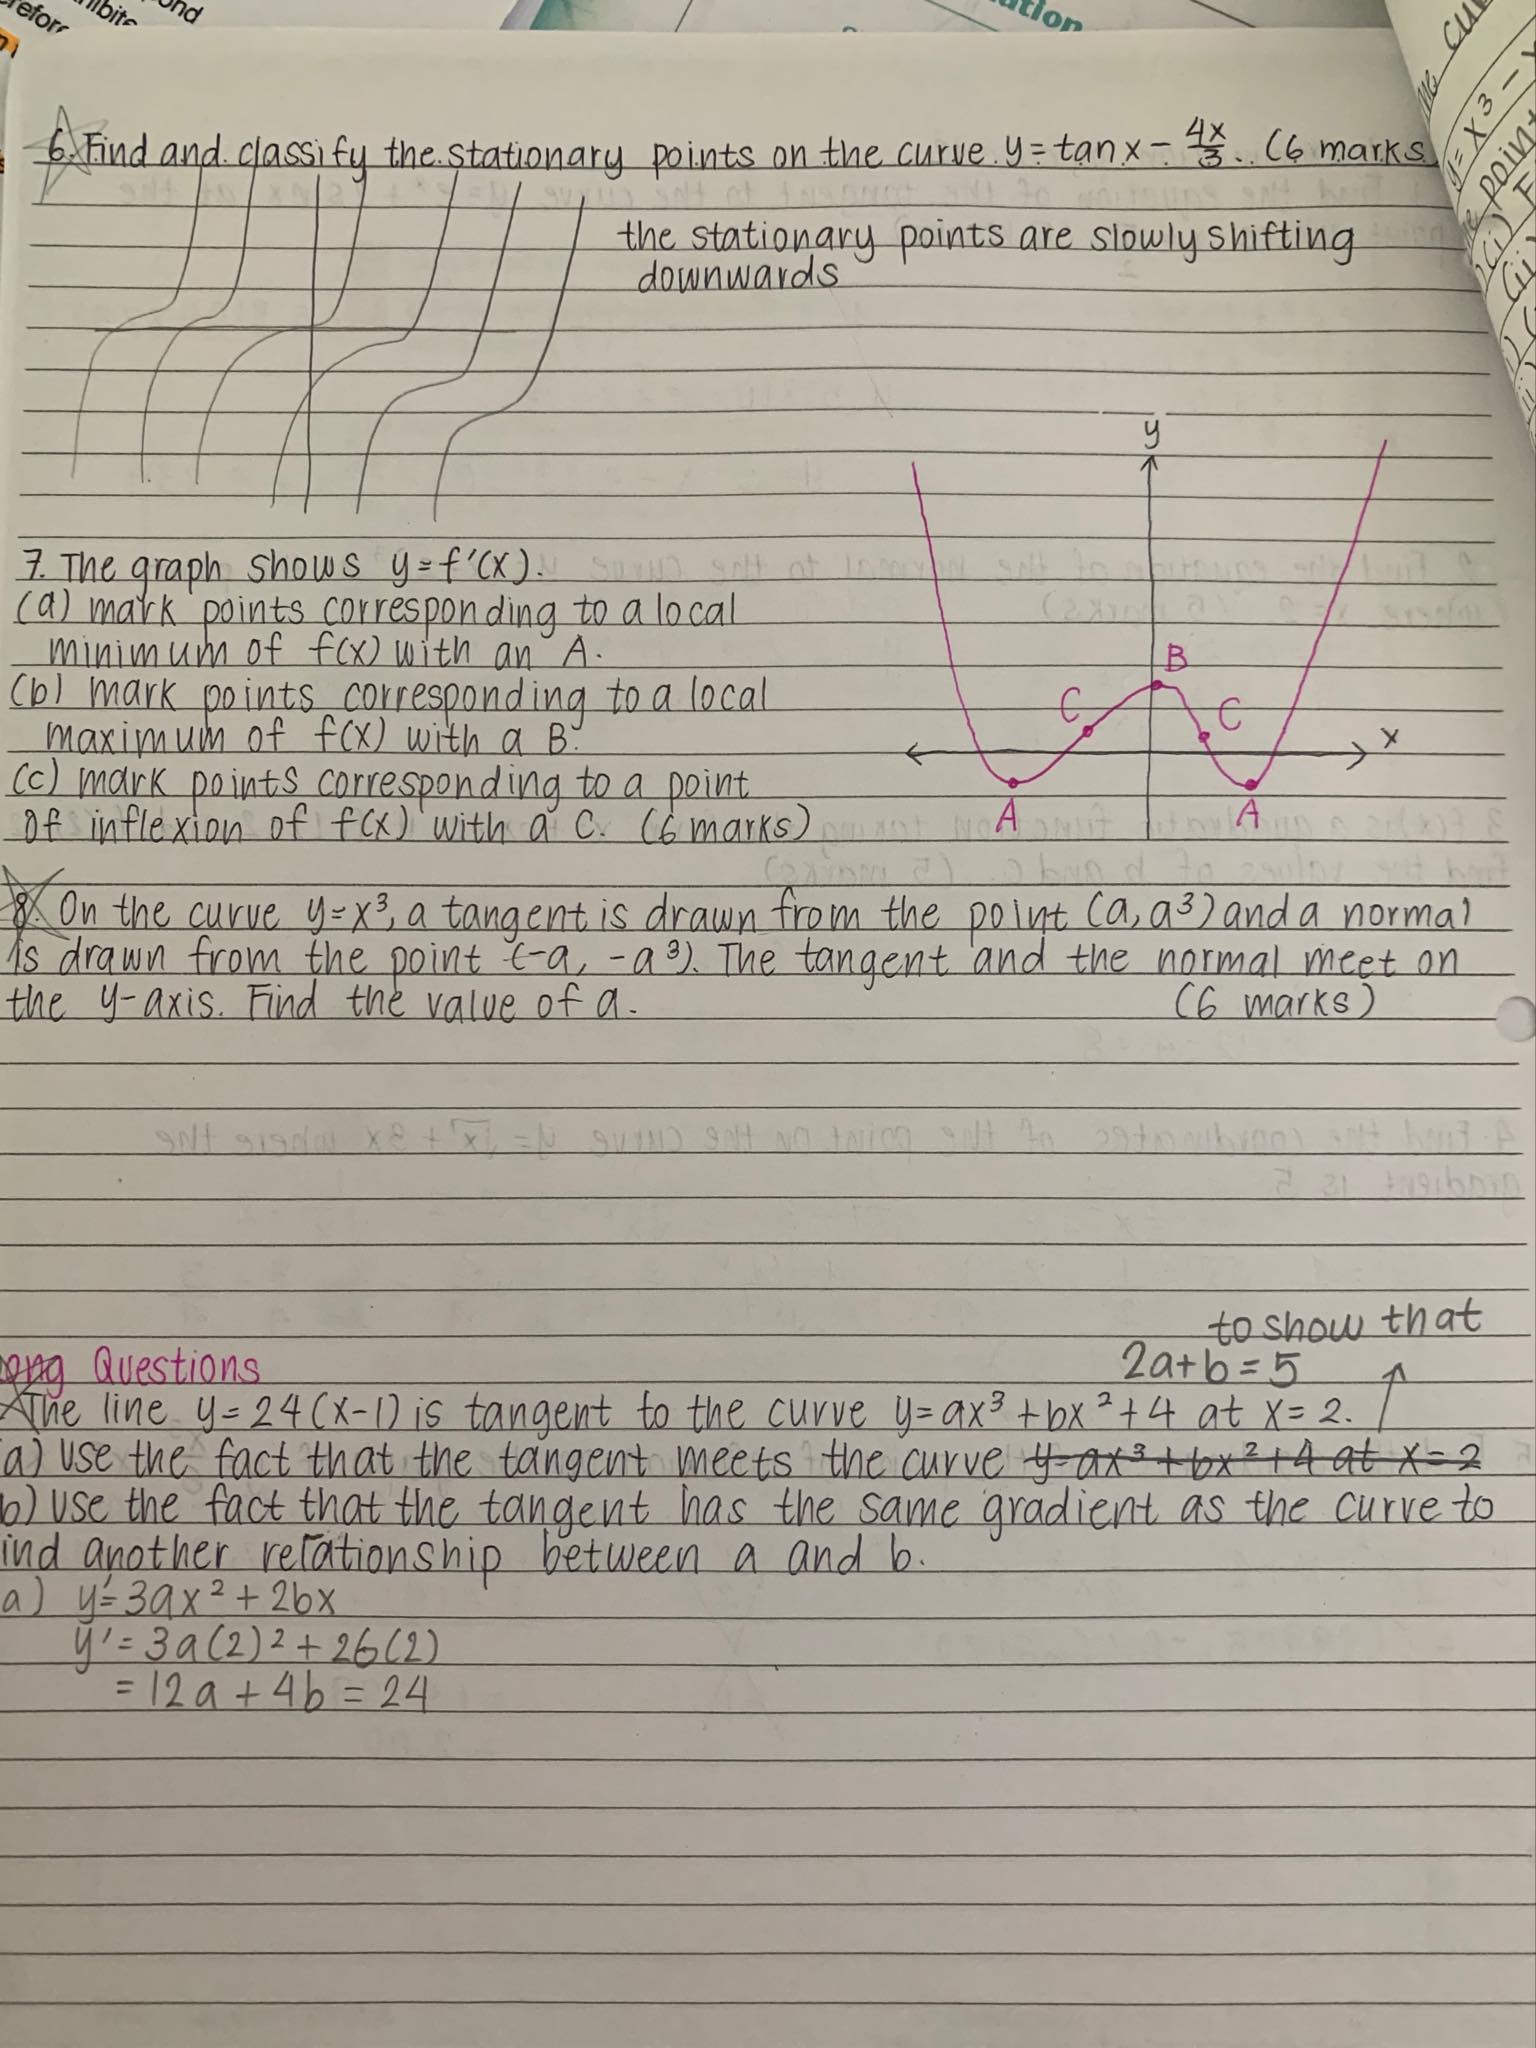 ond
hibits
refor
ution
6. Find and classify the stationary points on the curve y = tanx - 4x/3. (6 marks
the stationary points are slowly shifting
downwards
y
7. The graph shows y = f'(x).
(a) mark points corresponding to a local
minimum of f(x) with an A.
(b) mark points corresponding to a local
maximum of f(x) with a B.
(c) mark points corresponding to a point
of inflexion of f(x) with a C. (6 marks)
B
C
C
x
A
A
8. On the curve y=x³, a tangent is drawn from the point (a, a³) and a normal
is drawn from the point (-a, -a³). The tangent and the normal meet on
the y-axis. Find the value of a. (6 marks)
to show that
2a+b=5
ong Questions
The line y=24(x-1) is tangent to the curve y=ax³+bx²+4 at x=2.
a) Use the fact that the tangent meets the curve y=ax³+bx²+4 at x=2
b) Use the fact that the tangent has the same gradient as the curve to
ind another relationship between a and b.
a) y'=3ax²+2bx
y'=3a(2)²+2b(2)
=12a+4b=24
y=x³-
point
(i)
(ii)